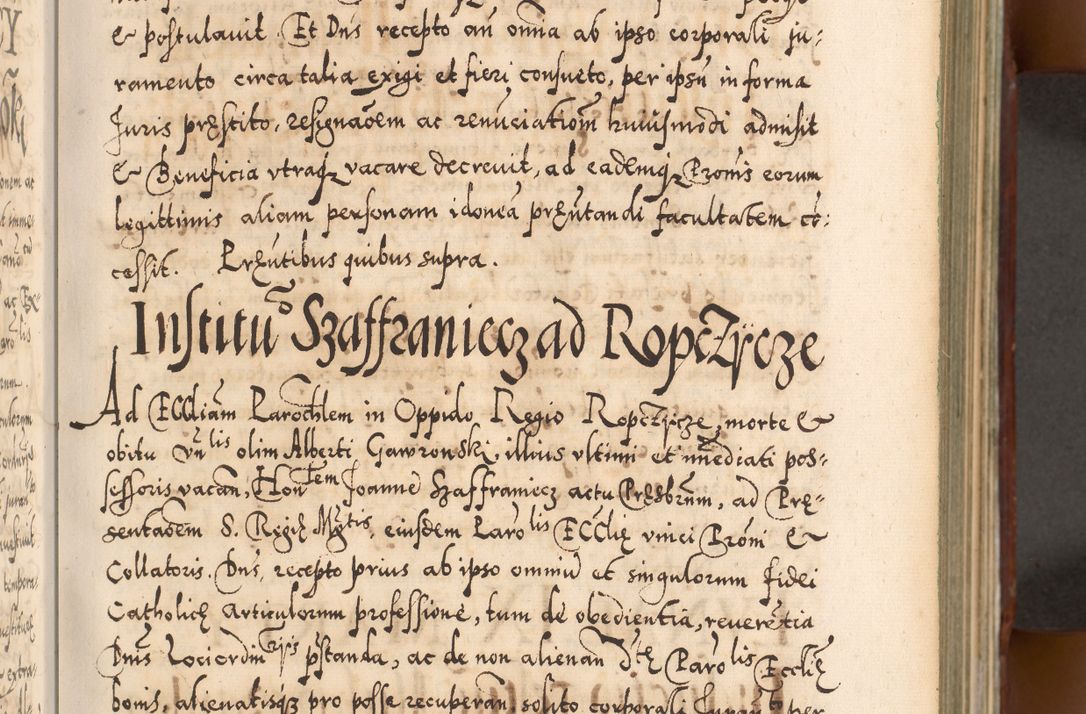 & postulavit. Et Dns recepto an omnia ab ipso corporali ju:
ramento circa talia exigi et fieri consueto, per ipsũ in forma
Juris præstito, resignaõem ac renũciatioñ huiusmodi admisit
& Beneficia vtraqꝫ vacare decrevit, ad eademqꝫ Pronis eorum
legittimis aliam personam idoneã præñtandi facultatem cõ:
cessit. Præñtibus quibus supra.
Institũo Szaffraniecz ad Ropcżycze
Ad Ecclĩam Parochlem in Oppido Regio Ropcżycze, morte &
obitu Vnlis olim Alberti Gawronski, illius vltimi et im̃ediati pos:
sessoris vacañ, Hontem Joannẽ Szaffraniecz actu Præsbrm, ad Præ:
sentaõem S. Regiæ Mgtis, eiusdem Parolis Ecclię vnici Proni &
Collatoris. Dns, recepto prius ab ipso omniũ et singulorum fidei
Catholicę Articulorum professione, tum de obedientia, reverẽtia
Dnis Locicrdinrijs pstanda, ac de non alienan dtę Parolis Ecclię
bonis, alienatisqꝫ pro posse recuperañ, solito corporali Juramto per